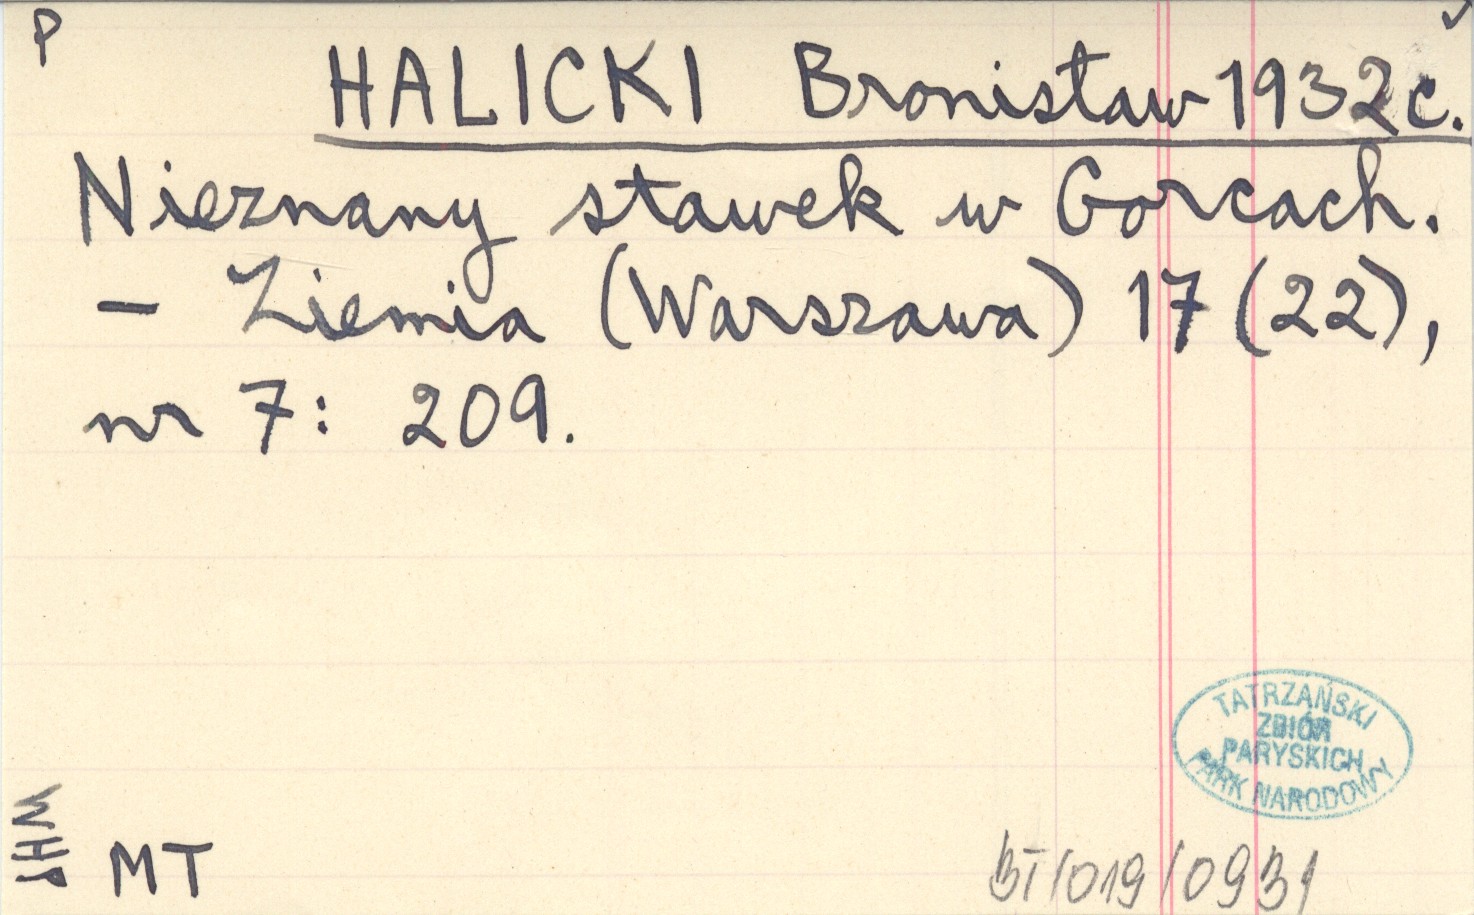 P
HALICKI Bronisław 1932c.
Nieznany stawek w Gorcach.
– Ziemia (Warszawa) 17 (22),
nr 7: 209.
TATRZAŃSKI
ZBIÓR
PARYSKICH
PARK NARODOWY
WHP
MT
BT/019/0931